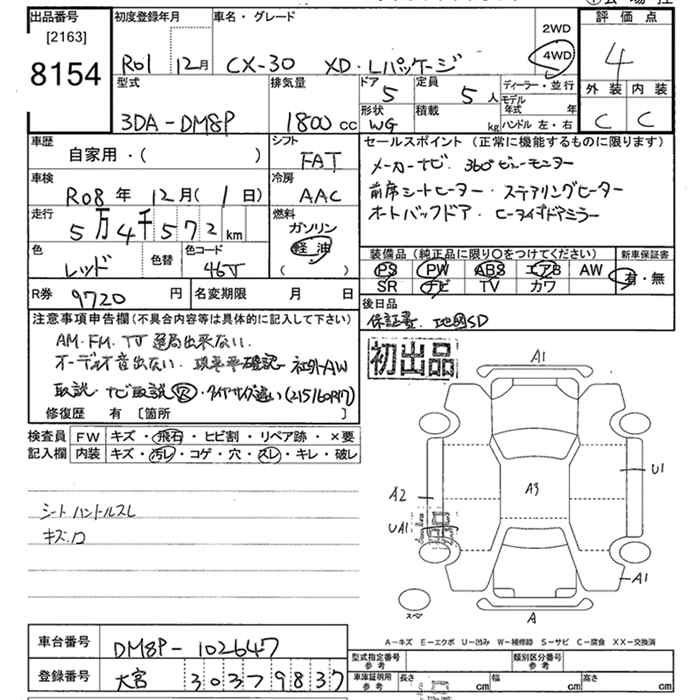 出品番号
[2163]
8154
初度登録年月
R01 12月
車名・グレード
CX-30 XD・Lパッケージ
2WD
4WD
評価点
4
外装 内装
C C
型式
3DA-DM8P
排気量
1800 cc
ドア
5
定員
5 人
ディーラー・並行
形状
WG
積載
kg
モデル年式 年
ハンドル 左・右
車歴
自家用・( )
シフト
FAT
車検
R08年 12月( 1日)
冷房
AAC
走行
5万4千572km
燃料
ガソリン
軽油
( )
色
レッド
色替
色コード
46V
R券
9720 円
名変期限 月 日
セールスポイント (正常に機能するものに限ります)
メーカーナビ. 360°ビューモニター
前席シートヒーター・ステアリングヒーター
オートバックドア・ヒータイプドアミラー
装備品(純正品に限り○をつけてください)
PS PW ABS エアB AW
SR ナビ TV カワ
新車保証書
有・無
後日品
保証書. 地図SD
注意事項申告欄(不具合内容等は具体的に記入して下さい)
AM.FM.TV 選局出来ない.
オーディオ音出ない. 確認 社外AW
取説・ナビ取説 ・タイヤサイズ違い(215/60R17)
修復歴 有 [箇所 ]
初出品
検査員
記入欄
FW キズ・飛石・ヒビ割・リペア跡・×要
内装 キズ・汚レ・コゲ・穴・スレ・キレ・破レ
シート ハンドルスレ
キズ.
A1
U1
A2
A3
UA1
A1
スペア
A
A-キズ E-エクボ U-凹み W-補修跡 S-サビ C-腐食 XX-交換済
車台番号
DM8P-102647
登録番号
大宮 303 79 837
型式指定番号
参考
類別区分番号
参考
車庫証明用
参考
長さ cm 幅 cm 高さ cm